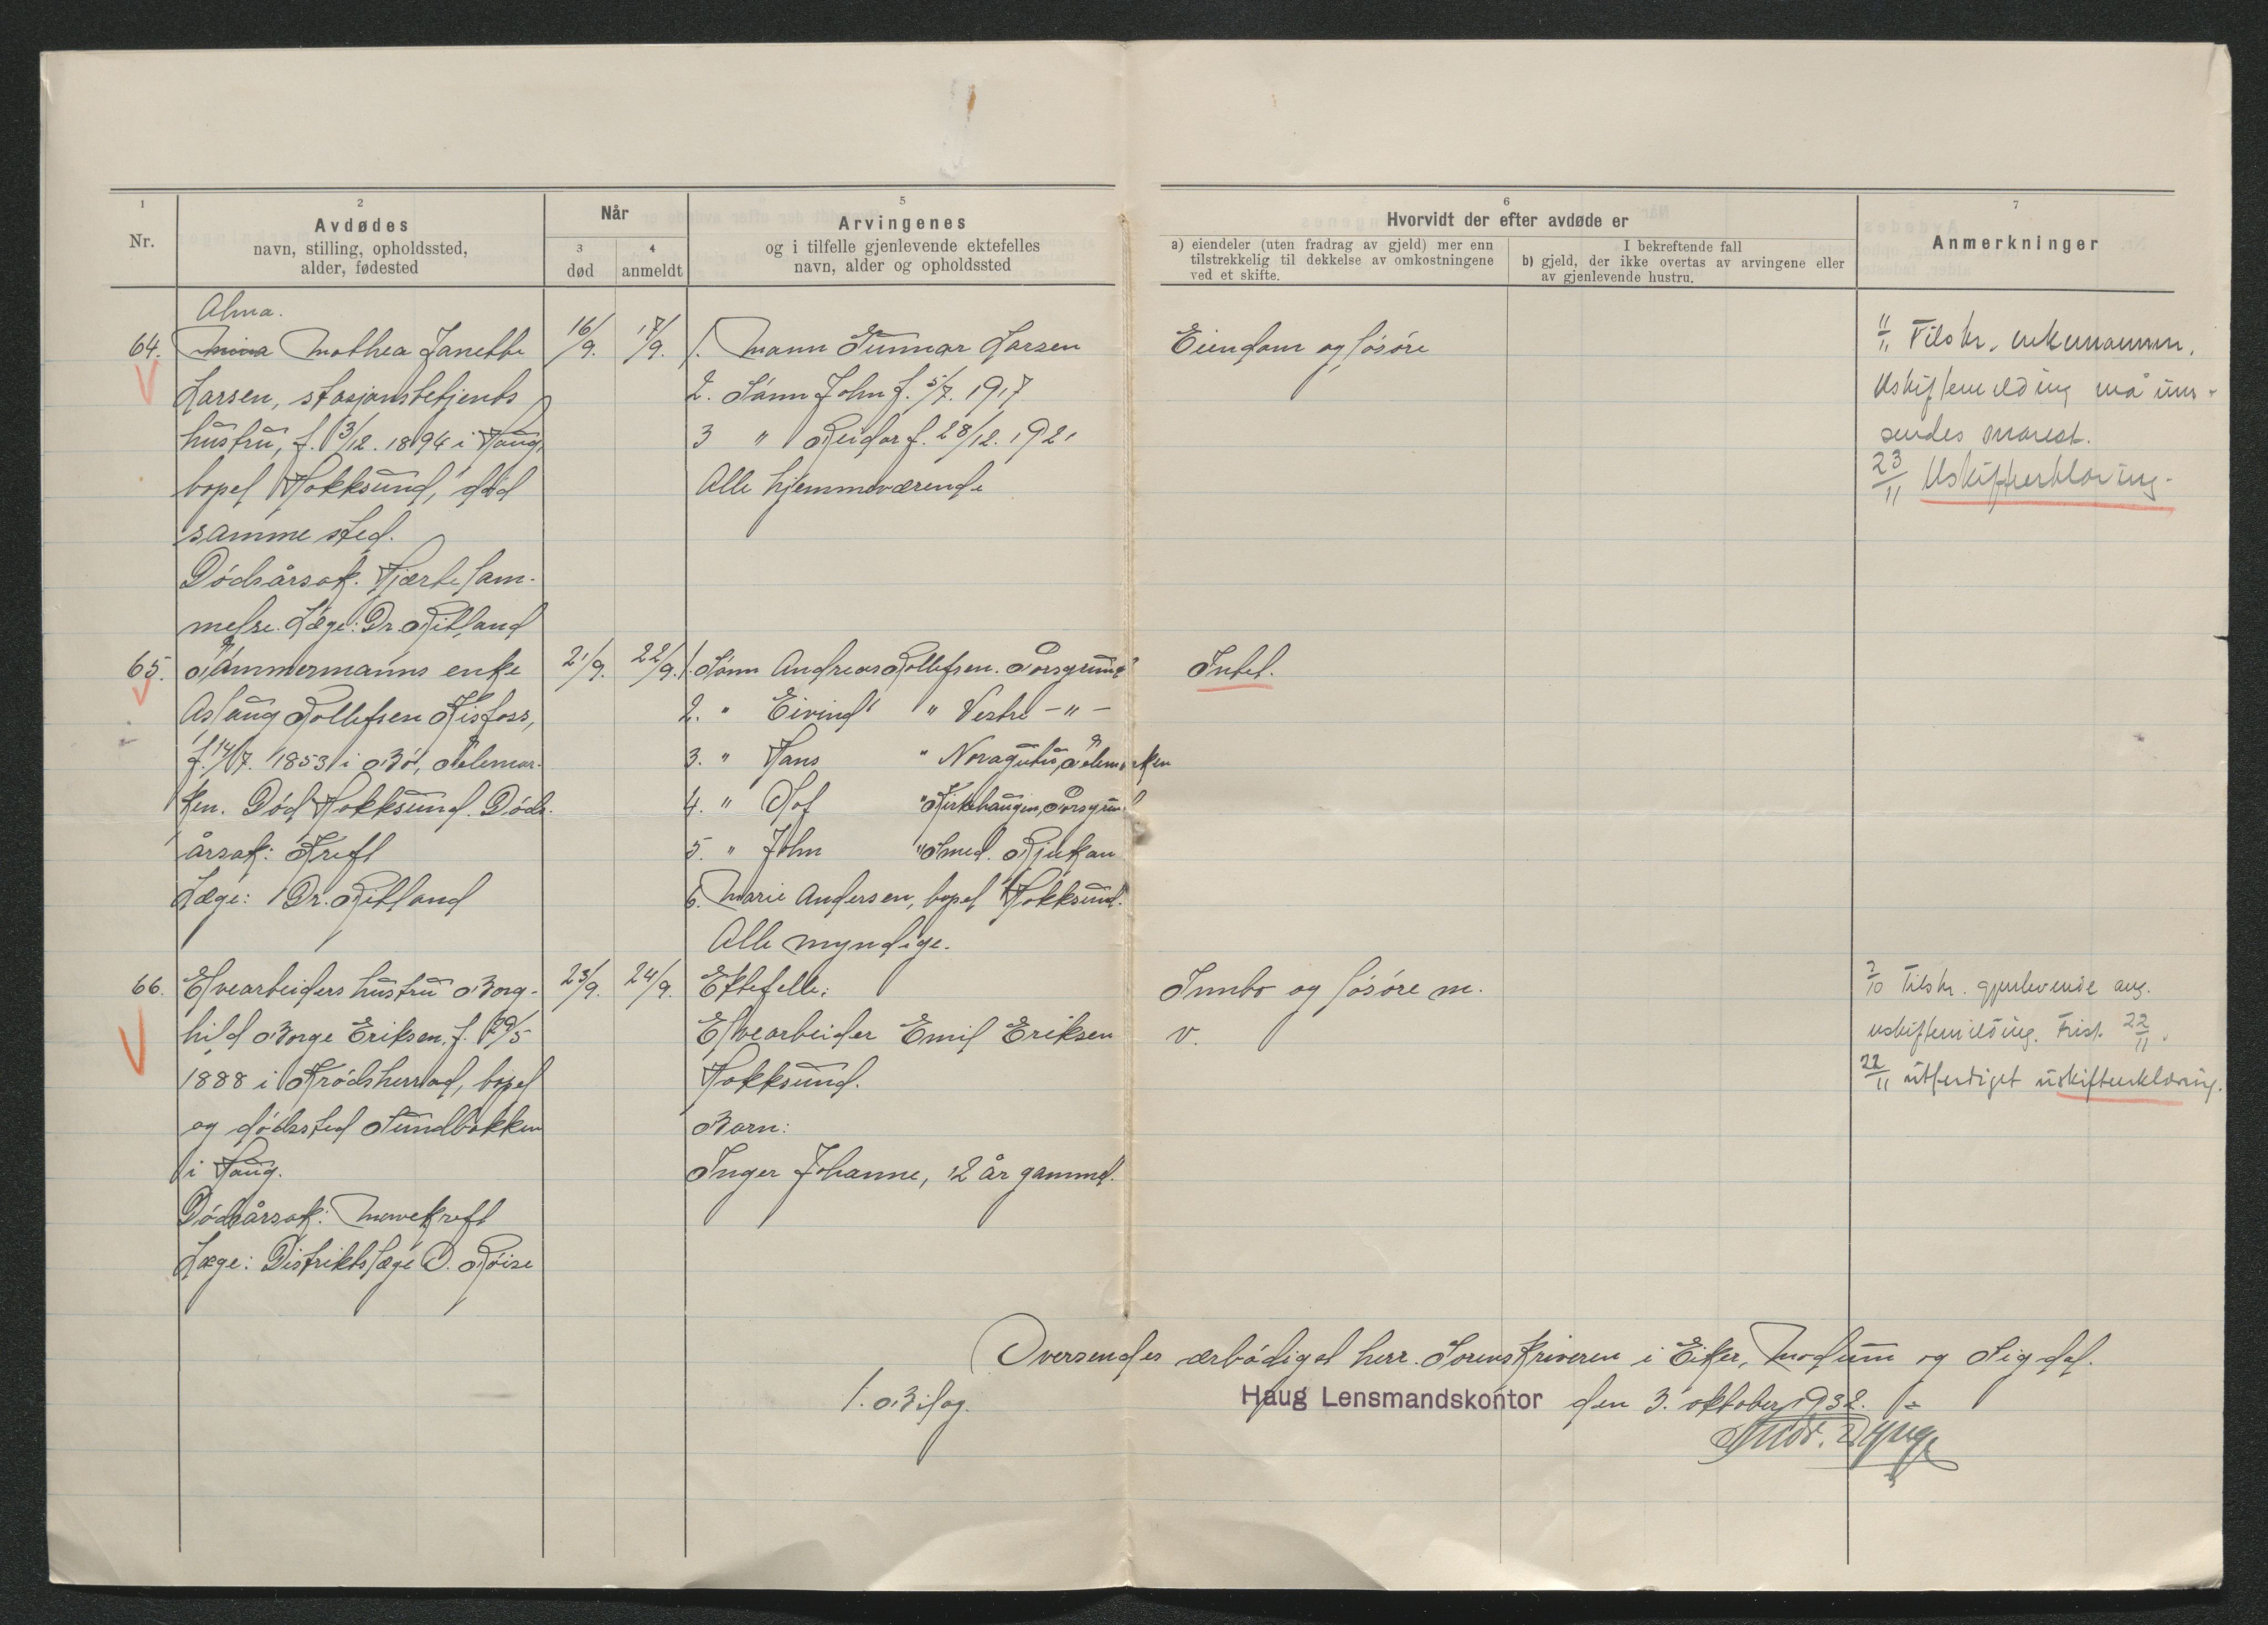 1
Nr.
2
Avdødes
navn, stilling, opholdssted,
alder, fødested
Når
3
død
4
anmeldt
5
Arvingenes
og i tilfelle gjenlevende ektefelles
navn, alder og opholdssted
6
Hvorvidt der efter avdøde er
a) eiendeler (uten fradrag av gjeld) mer enn
tilstrekkelig til dekkelse av omkostningene
ved et skifte.
I bekreftende fall
b) gjeld, der ikke overtas av arvingene eller
av gjenlevende hustru.
7
Anmerkninger
Alma.
64. Mothea Janette
Larsen, stasjonsbetjents
hustru, f. 3/12. 1894 i Haug,
bopel Hokksund, død
samme sted.
Dødsårsak. Hjertelam-
melse. Læge: Dr. Ritland
16/9. 17/9.
1. Mann Gunnar Larsen
2. Sønn John f. 5/7. 1917
3 " Reidar f. 28/12. 1921
Alle hjemmeværende
Eiendom og løsøre
11/11 Tilskr. enkemannen.
Uskiftemelding må inn-
sendes snarest.
23/11 Uskifteerklæring.
65. Tømmermanns enke
Aslaug Rollefsen Kisfoss,
f. 14/7. 1853 i Bø, Telemar-
ken. Død Hokksund. Døds-
årsak: Kreft
Læge: Dr. Ritland
21/9. 22/9.
1. Sønn Andreas Rollefsen. Porsgrund
2. " Eivind " Vestre - " -
3. " Hans " Noragutu, Telemarken
4. " Olaf " Kirkehaugen, Porsgrund
5. " John " Smed. Rjukan
6. Marie Andersen, bopel Hokksund.
Alle myndige.
Intet.
66. Elvearbeiders hustru Borg-
hild Borge Eriksen, f. 29/5
1888 i Krødsherad, bopel
og dødssted Sundbakken
i Haug.
Dødsårsak: Mavekreft
Læge: Distriktslæge O. Røise
23/9. 24/9.
Ektefelle:
Elvearbeider Emil Eriksen
Hokksund.
Barn:
Inger Johanne, 12 år gammel.
Innbo og løsøre m.
v.
7/10 Tilskr. gjenlevende ang.
uskiftemelding. Frist 22/11.
22/11 utferdiget uskifteerklæring.
Oversendes ærbødigst herr Sorenskriveren i Eiker, Modum og Sigdal.
1. Bilag.
Haug Lensmandskontor den 3. oktober 1932.